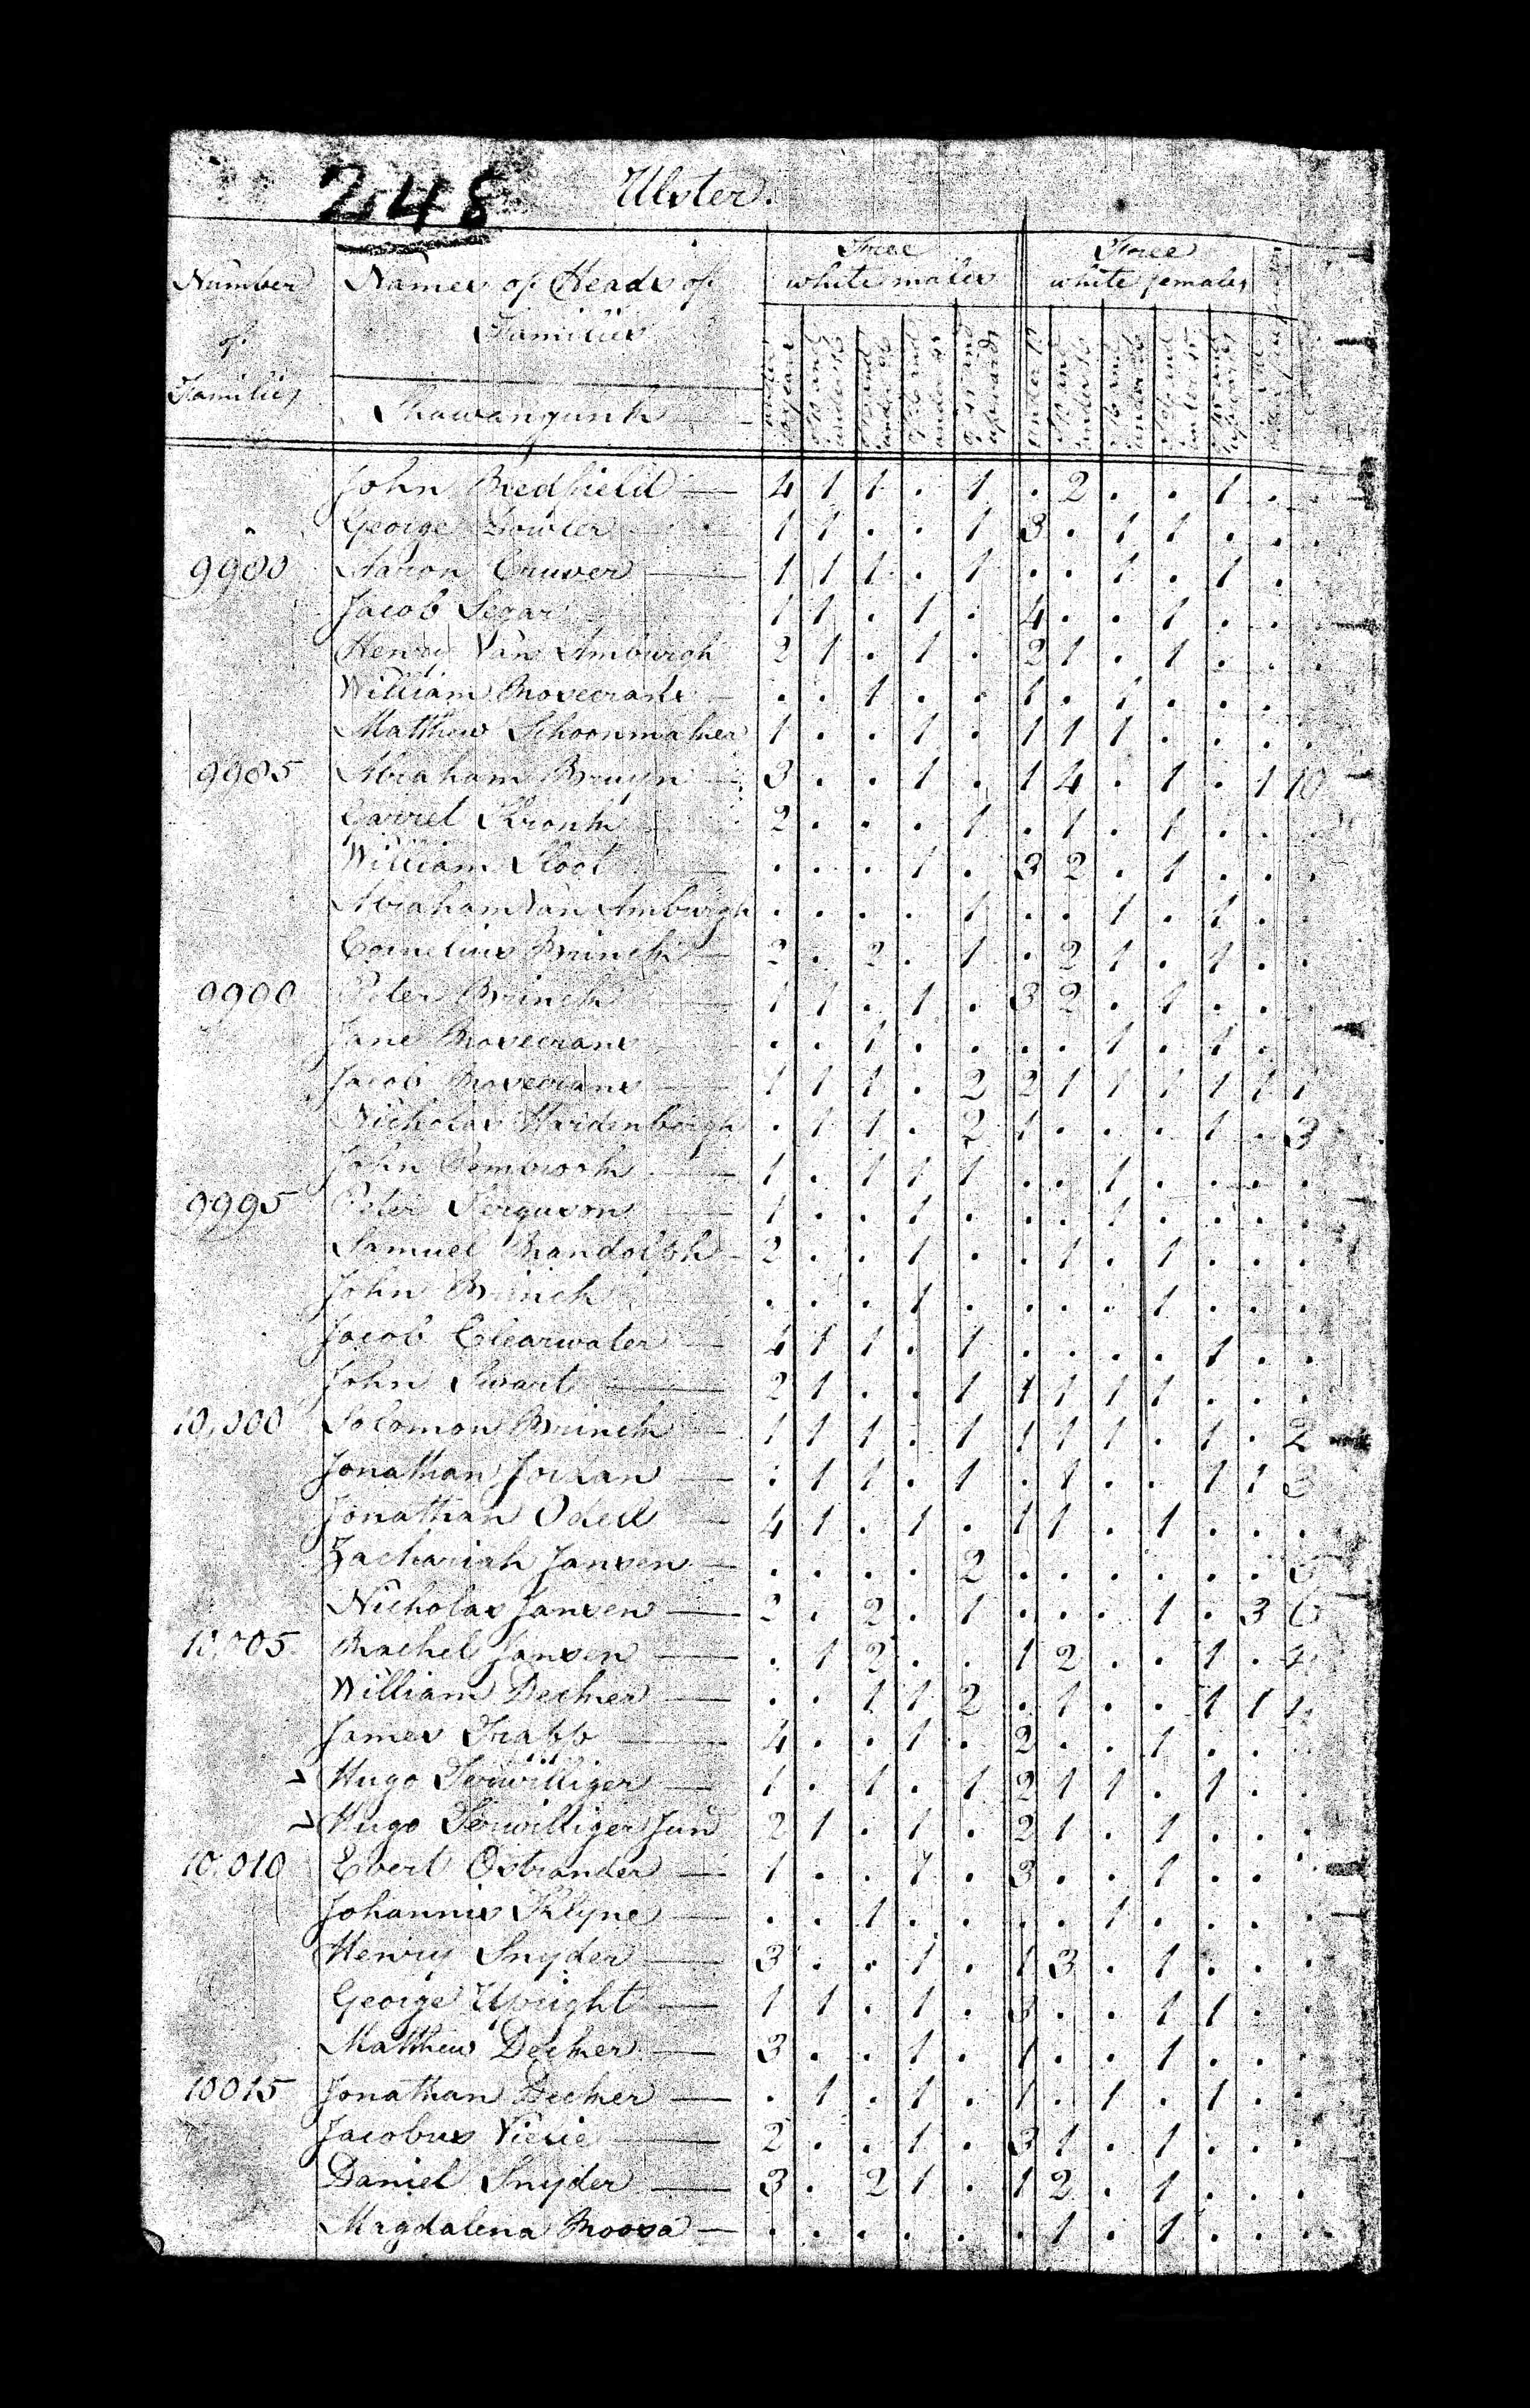 248 Ulster.
Number of Families
Names of Heads of Families
Free white males
Free white females
Shawangunk
under 10 years
of 10 and under 16
of 16 and under 26
of 26 and under 45
of 45 and upwards
under 10
of 10 and under 16
of 16 and under 26
of 26 and under 45
of 45 and upwards
John Redfield — 4 1 1 . 1 . 2 . . 1 . .
George 1 1 . . 1 3 . 1 1 . . .
9980 Aaron Cruver — 1 1 1 . 1 . . 1 . 1 . .
Jacob Segar 1 1 . 1 . 4 . . 1 . . .
Henry Van Amburgh 2 1 . 1 . 2 1 . 1 . . .
William Rosecrans . . 1 . . 1 . 1 . . . .
Matthew Schoonmaker 1 . . 1 . 1 1 1 . . . .
9985 Abraham Bruyn 3 . . 1 . 1 4 . 1 . 1 10
Garret Kronk 2 . . . 1 . 1 . 1 . . .
William Sloot . . . 1 . 3 2 . 1 . . .
Abraham Van Amburgh . . . . 1 . . 1 . 1 . .
Cornelius Brinck 2 . 2 . 1 . 2 1 . 1 . .
9990 Peter Brinck 1 1 . 1 . 3 2 . 1 . . .
Jane Rosecrans . . 1 . . . . 1 . 1 . .
Jacob Rosecrans — 1 1 1 . 2 2 1 1 1 1 1 1
Nicholas Hardenbergh . 1 1 . 2 1 . . . 1 . 3
John Pembrook 1 . 1 1 1 . . 1 . . . .
9995 Peter Ferguson 1 . . 1 . . . 1 . . . .
Samuel Randolph 2 . . 1 . . 1 . 1 . . .
John Brinck . . . 1 . . . . 1 . . .
Jacob Clearwater — 4 1 1 . 1 . . . . 1 . .
John Swart — 2 1 . . 1 1 1 1 1 . . .
10,000 Solomon Brinck 1 1 1 . 1 1 1 1 . 1 . 2
Jonathan — . 1 1 . 1 . 1 . . 1 1 3
Jonathan Odell — 4 1 . 1 . 1 1 . 1 . . .
Zachariah Jansen — . . . . 2 . . . . . . 5
Nicholas Jansen — 2 . 2 . 1 . . . 1 . 3 6
10,005 Rachel Jansen — . 1 2 . . 1 2 . . 1 . 4
William Decker — . . 1 1 2 . 1 . . 1 1 1
James Trapp — 4 . . 1 . 2 . . 1 . . .
> Hugo Terwilliger — 1 . 1 . 1 2 1 1 . 1 . .
> Hugo Terwilliger Jun 2 1 . 1 . 2 1 . 1 . . .
10,010 Evert Ostrander — 1 . . 1 . 3 . . 1 . . .
Johannis Klyne — . . 1 . . . . 1 . . . .
Henry Snyder — 3 . . 1 . 1 3 . 1 . . .
George Upright — 1 1 . 1 . 3 . . 1 1 . .
Matthew Decker — 3 . . 1 . 1 . . 1 . . .
10015 Jonathan Decker — . 1 . 1 . 1 . 1 . 1 . .
Jacobus — 2 . . 1 . 3 1 . 1 . . .
Daniel Snyder — 3 . 2 1 . 1 2 . 1 . . .
Magdalena Roosa — . . . . . . 1 . 1 . . .